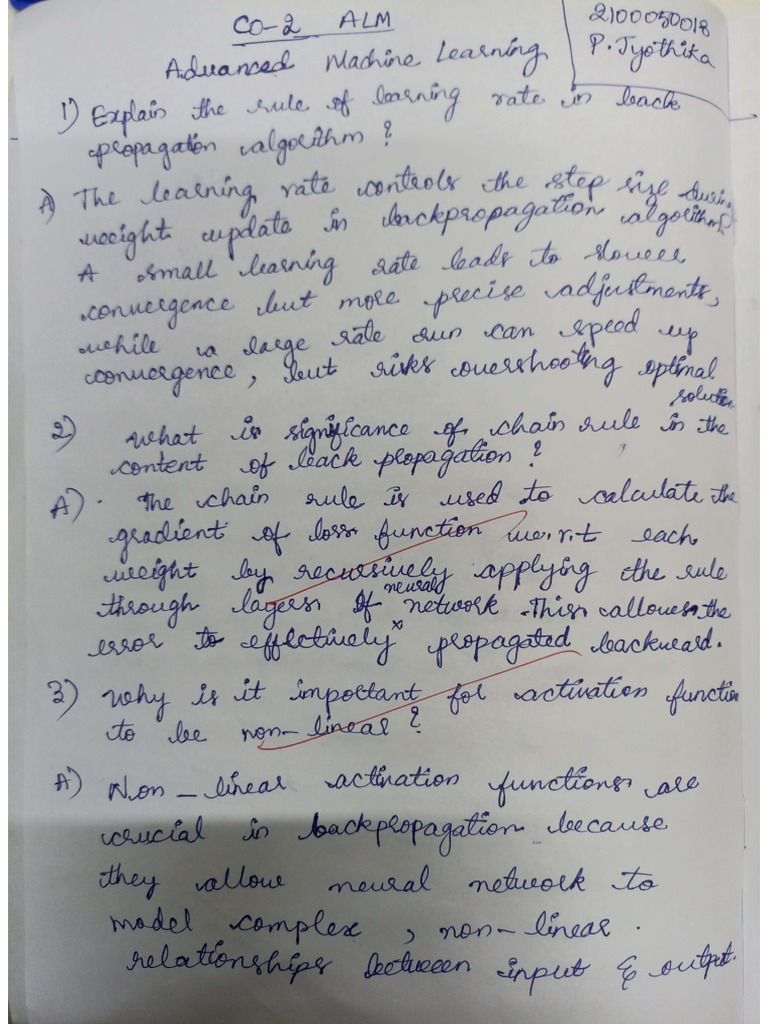 CO-2 ALM
2100050018
P. Jyothika
Advanced Machine Learning
1) Explain the rule of learning rate in back
propagation algorithm?
A) The learning rate controls the step size during
weight update in backpropagation algorithm.
A small learning rate leads to slower
convergence but more precise adjustments,
while a large rate run can speed up
convergence, but risks overshooting optimal
solution
2) what is significance of chain rule in the
content of back propagation?
A) The chain rule is used to calculate the
gradient of loss function w.r.t each
weight by recursively applying the rule
through layers of neural network. This allows the
error to effectively propagated backward.
3) why is it important for activation function
to be non-linear?
A) Non-linear activation functions are
crucial in backpropagation because
they allow neural network to
model complex, non-linear.
relationships between input & output.